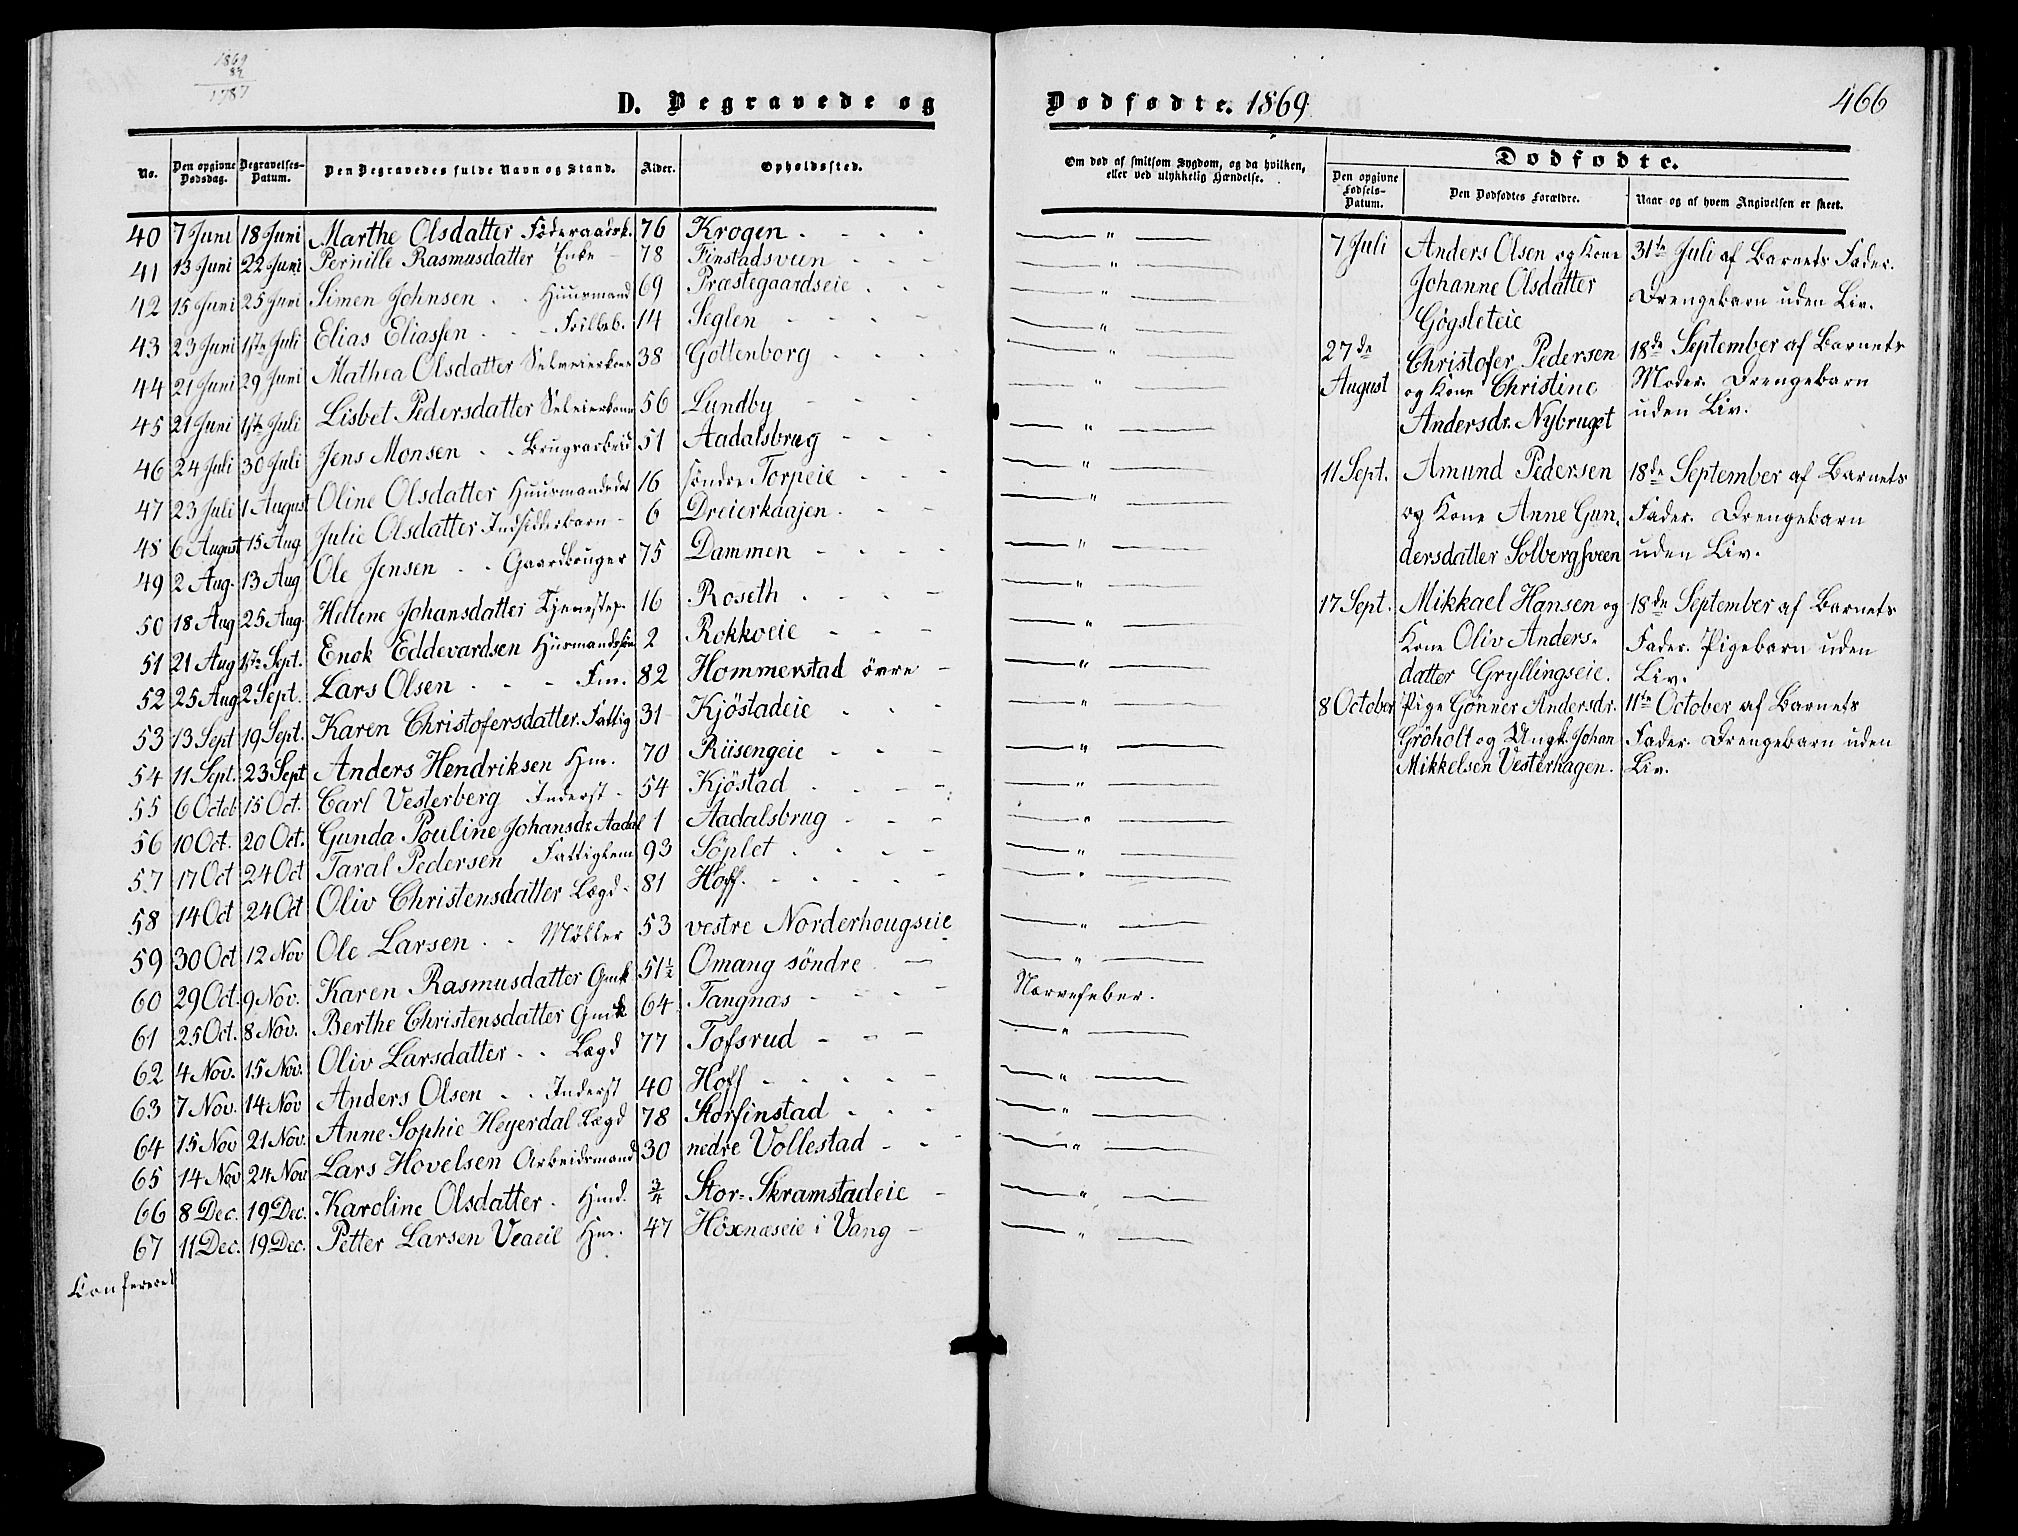 1869
82
1787
D. Begravede og
No. Den opgivne Dødsdag. Begravelses-Datum. Den Begravedes fulde Navn og Stand. Alder. Opholdssted.
40 7 Juni 18 Juni Marthe Olsdatter Föderaadsk. 76 Krogen
41 13 Juni 22 Juni Pernille Rasmusdatter Enke 78 Finstadsveen
42 15 Juni 25 Juni Simen Johnsen Huusmand 69 Præstegaardseie
43 23 Juni 1ste Juli Elias Eliassen 14 Seglen
44 21 Juni 29 Juni Mathea Olsdatter Selveierkone 38 Gottenborg
45 21 Juni 1ste Juli Lisbet Pedersdatter Selveierkone 56 Lundby
46 24 Juli 30 Juli Jens Monsen Brugsarbeid 51 Aadalsbrug
47 23 Juli 1 August Oline Olsdatter Huusmandsdat 16 söndre Torpeie
48 6 August 15 Aug Julie Olsdatter Indsidderbarn 6 Dreierkaajen
49 2 Aug. 13 Aug Ole Jensen Gaardbruger 75 Dammen
50 18 Aug 25 Aug Hellene Johansdatter Tjenestep. 16 Roseth
51 21 Aug 1ste Sept. Enok Eddevardsen Husmandssön 2 Rokkoeie
52 25 Aug 2 Sept. Lars Olsen Fm. 82 Hommerstad övre
53 13 Sept 19 Sept. Karen Christofersdatter. Fattig 31 Kjöstadeie
54 11 Sept. 23 Sept Anders Hendriksen Hm. 70 Riisengeie
55 6 Octob 15 Oct. Carl Vesterberg Inderst 54 Kjöstad
56 10 Oct. 20 Oct. Gunda Pouline Johansdr. Aadal 1 Aadalsbrug
57 17 Oct 24 Oct Taral Pedersen Fattiglem 93 Söplet
58 14 Oct 24 Oct Oliv Christensdatter Lægd 81 Hoff.
59 30 Oct 12 Nov Ole Larsen Møller 53 vestre Norderhougseie
60 29 Oct. 9 Nov. Karen Rasmusdatter Gmk 51½ Omang söndre
61 25 Oct. 8 Nov. Berthe Christensdatter Gmk 64 Tangnæs
62 4 Nov. 15 Nov. Oliv Larsdatter Lægd 77 Tofsrud
63 7 Nov. 14 Nov Anders Olsen Inderst 40 Hoff
64 15 Nov 21 Nov. Anne Sophie Heyerdal Lægd 78 Storfinstad
65 14 Nov 24 Nov Lars Hovelsen Arbeidsmand 30 nedre Vollestad
66 8 Dec. 19 Dec. Karoline Olsdatter. Hmd. ¾ Stor-Skramstadeie
67 11 Dec. 19 Dec. Petter Larsen Veaeie Hm. 47 Höxnæseie i Vang
Confereret
Dødfødte. 1869
466
Om død af smitsom Sygdom, og da hvilken, eller ved ulykkelig Hændelse.
Dødfødte.
Den opgivne Fødsels-Datum. Den Dødfødtes Forældre. Naar og af hvem Angivelsen er skeet.
Nervefeber.
7 Juli Anders Olsen og Kone 31te Juli af Barnets Fader.
Johanne Olsdatter Drengebarn uden Liv.
Gögsleteie
27de Christofer Pedersen 18de September af Barnets
August og Kone Christine Moder. Drengebarn
Andersdr. Nybruget uden Liv.
11 Sept. Amund Pedersen 18de September af Barnets
og Kone Anne Gun- Fader. Drengebarn
dersdatter Solbergsveen uden Liv.
17 Sept. Mikkael Hansen og 18de September af Barnets
Kone Oliv Anders- Fader. Pigebarn uden
datter Gryllingseie. Liv.
8 October Pige Gönner Andersdr. 11te October af Barnets
Gröholt og Ungk. Johan Fader. Drengebarn uden
Mikkelsen Vesterhagen. Liv.